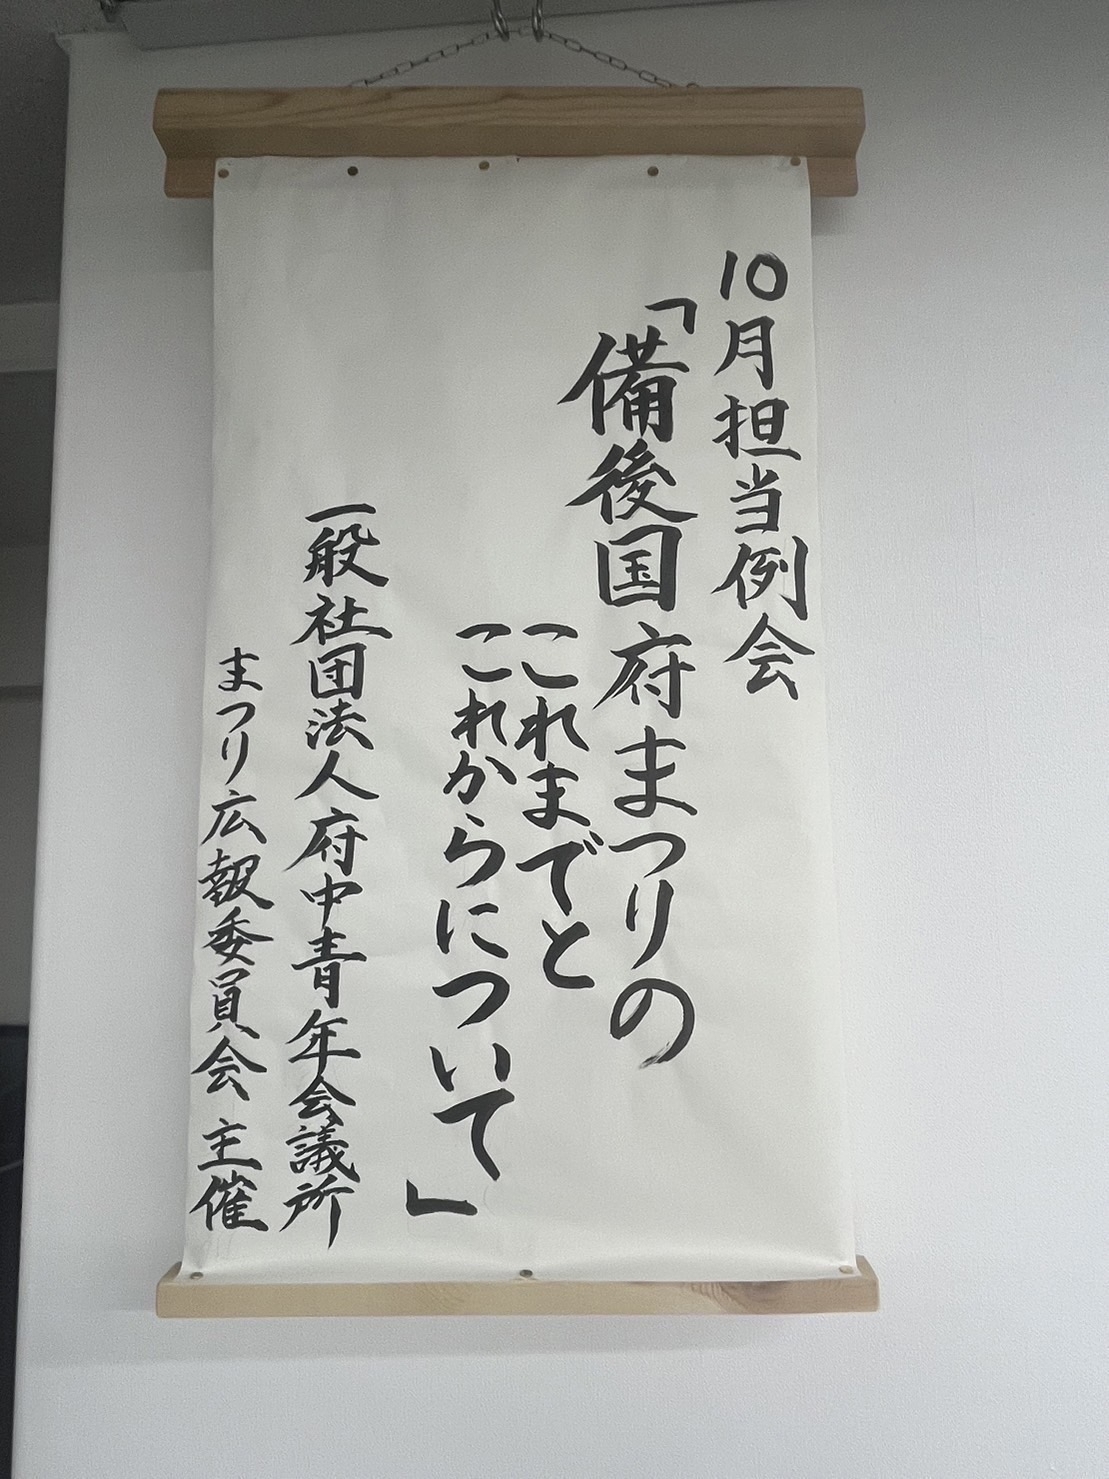 10月担当例会
「備後国府まつりの
これまでと
これからについて」
一般社団法人府中青年会議所
まつり広報委員会 主催